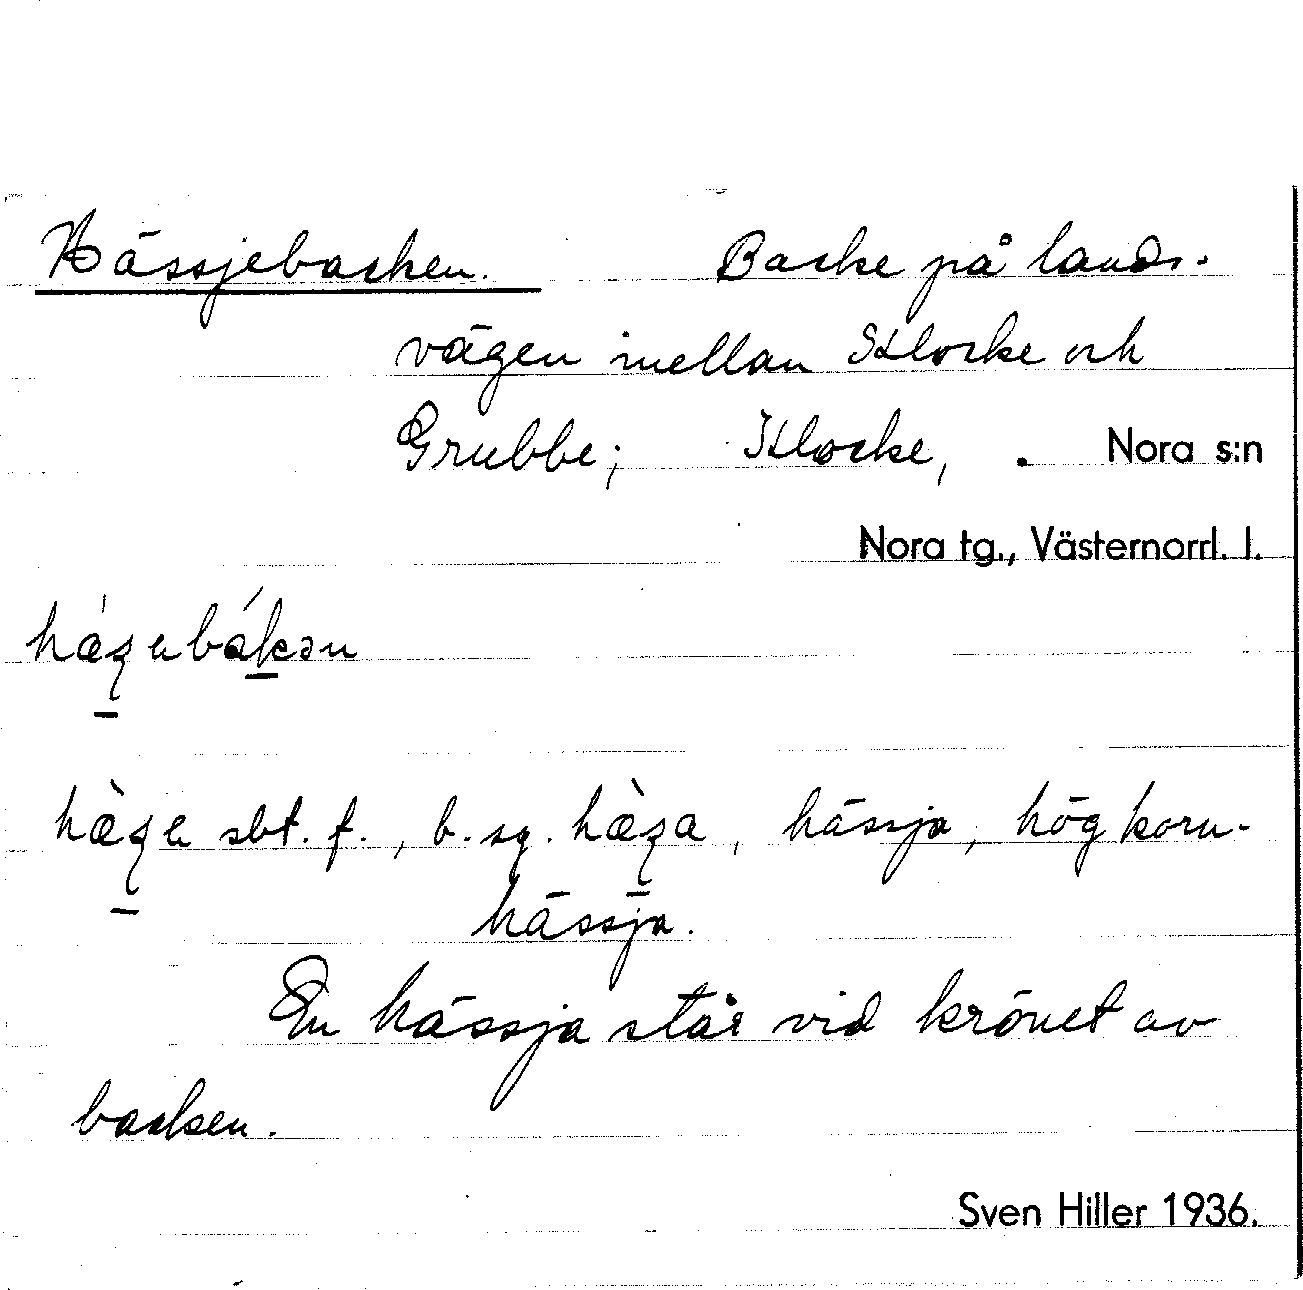 Hässjebacken. Backe på lands-
vägen mellan Klocke och
Grubbe; Klocke, . Nora s:n
Nora tg., Västernorrl. l.
sbt. f., b. sg. hässja, hög korn-
hässja.
En hässja står vid krönet av
backen.
Sven Hiller 1936.